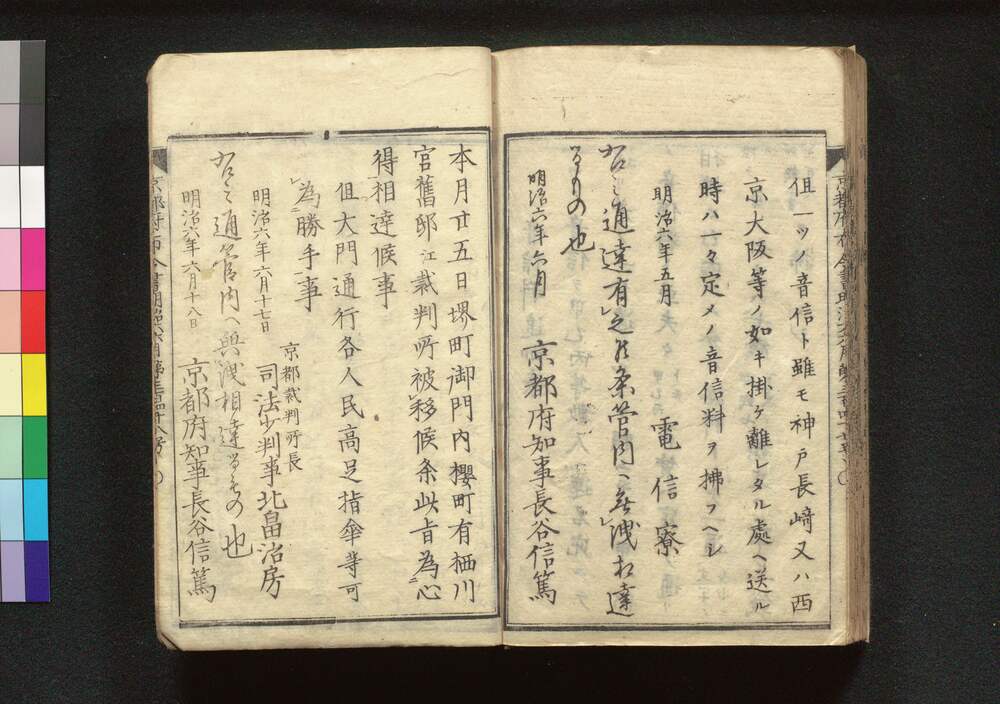 但一ツノ音信ト雖モ神戸長﨑又ハ西
京大阪等ノ如キ掛ケ離レタル處ヘ送ル
時ハ一々定メノ音信料ヲ拂フヘシ
明治六年五月 電信寮
右之通達有之候条管内ヘ無洩相達
るもの也
明治六年六月 京都府知事長谷信篤
本月廿五日堺町御門内櫻町有栖川
宮舊邸江裁判所被移候条此旨為心
得相達候事
但大門通行各人民高足指傘等可
為勝手事
京都裁判所長
明治六年六月十七日 司法少判事北畠治房
右之通管内ヘ無洩相達るもの也
明治六年六月十八日 京都府知事長谷信篤